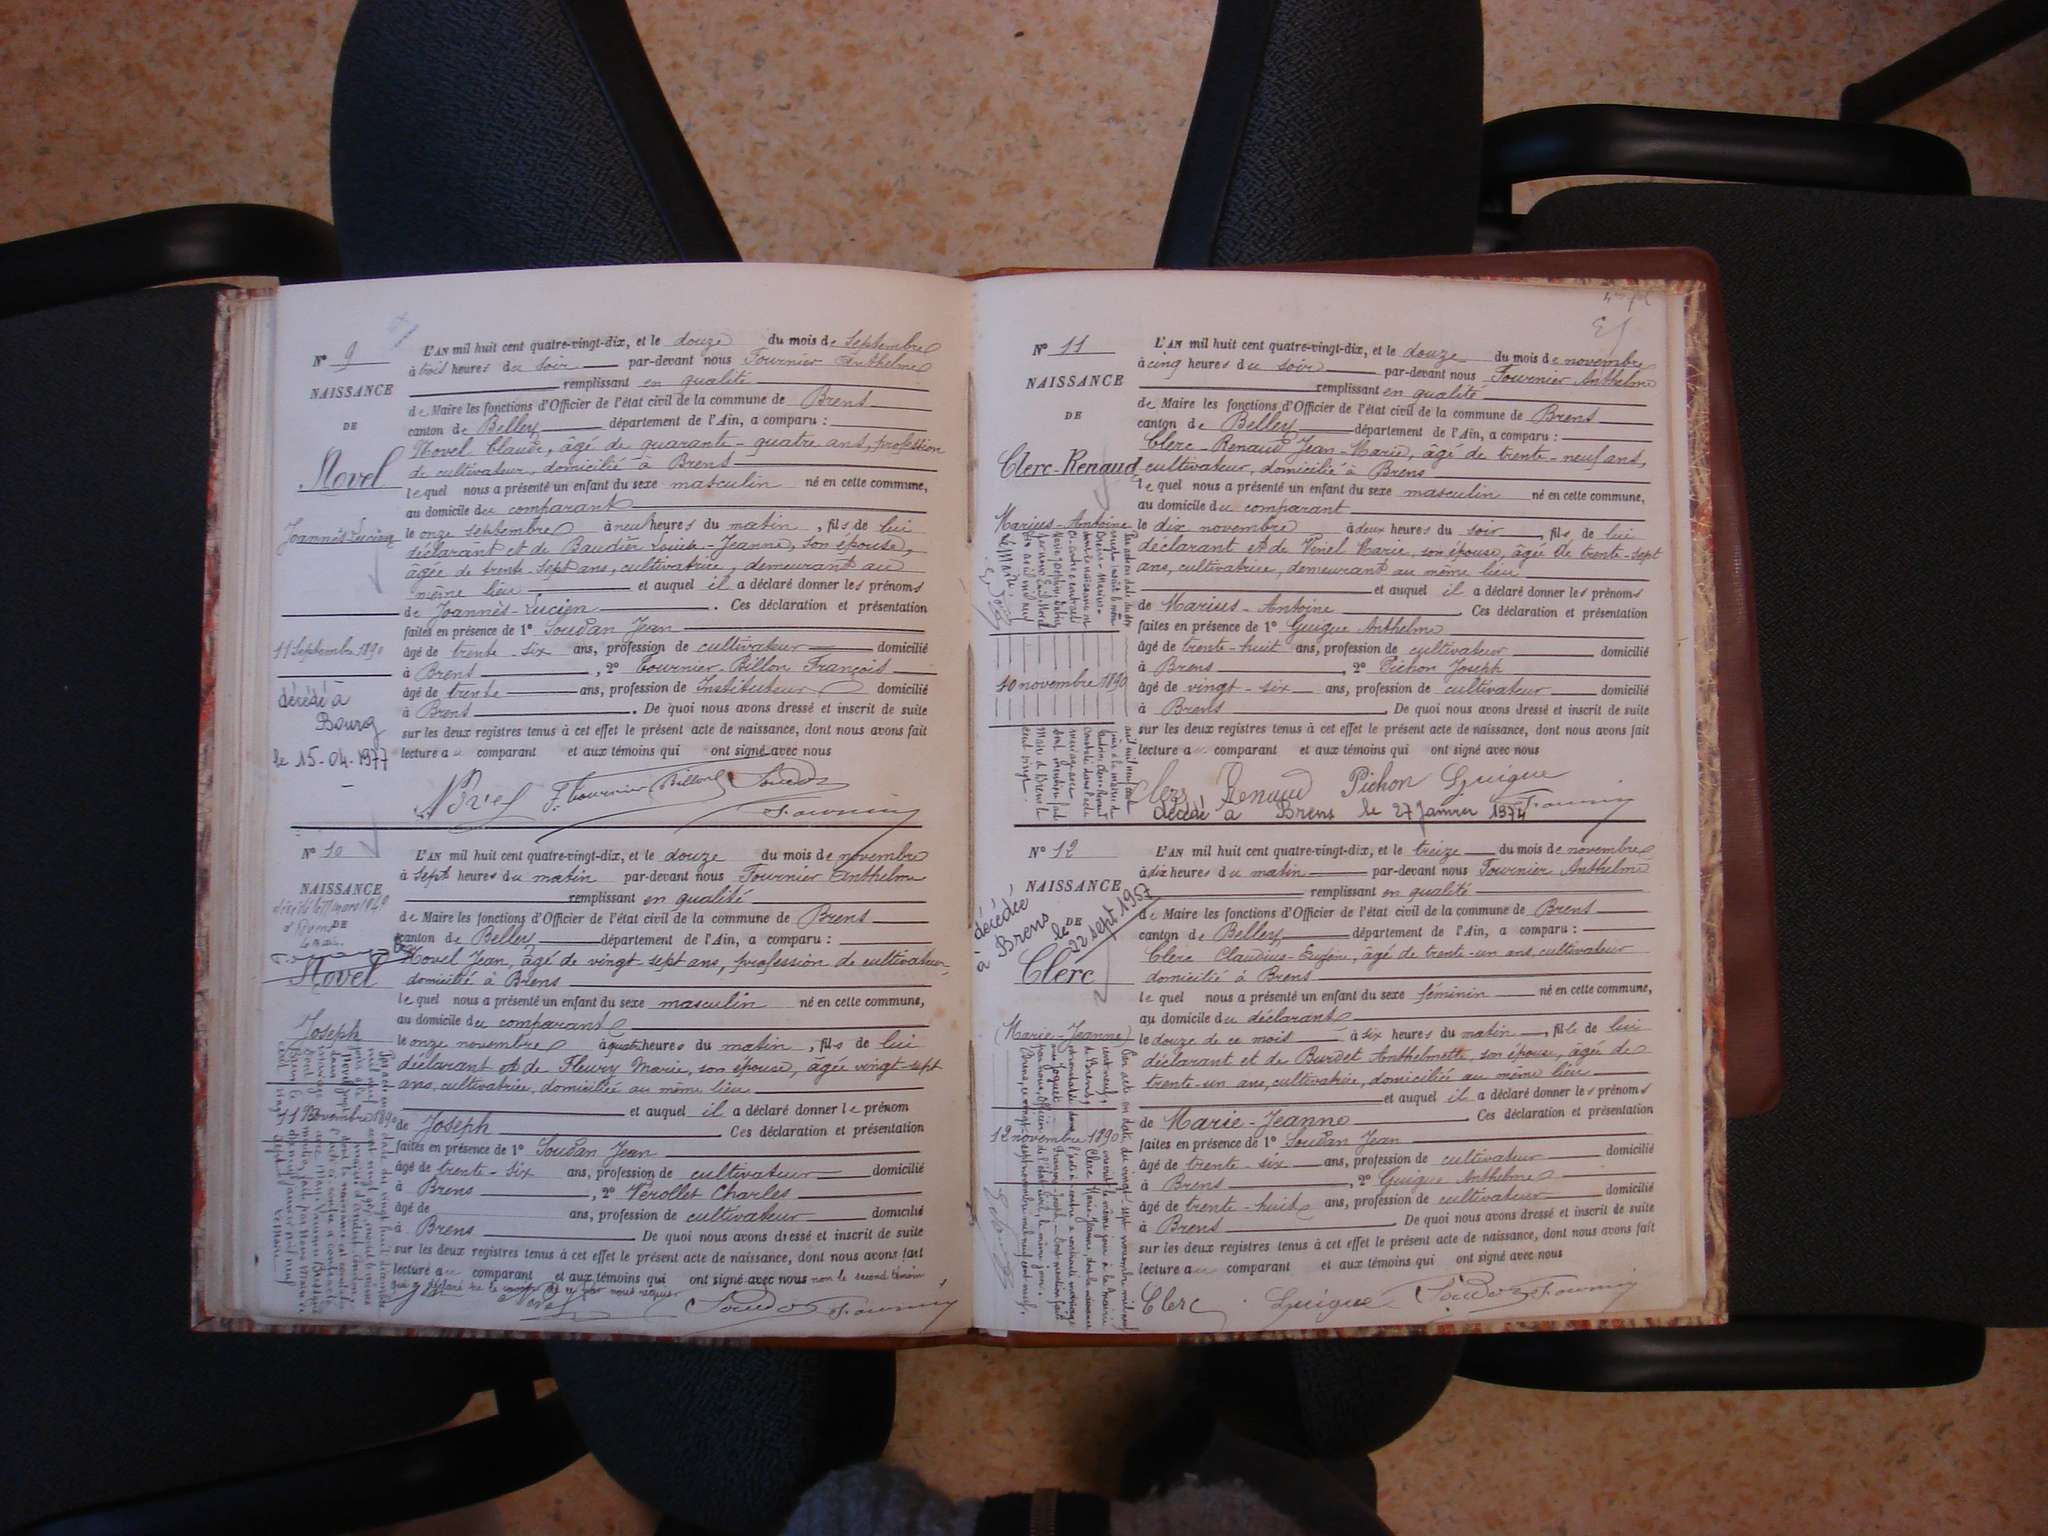 N° 9
NAISSANCE
DE
Novel
Joannès Lucien
11 Septembre 1890
décédé à
Bourg
le 15-04-1977
L'AN mil huit cent quatre-vingt-dix, et le douze du mois de Septembre
à trois heures du soir par-devant nous Fournier Anthelme
remplissant en qualité
de Maire les fonctions d'Officier de l'état civil de la commune de Brens
canton de Belley département de l'Ain, a comparu :
Novel Claude, âgé de quarante-quatre ans, profession
de cultivateur, domicilié à Brens
lequel nous a présenté un enfant du sexe masculin né en cette commune,
au domicile du comparant
le onze septembre à neuf heures du matin, fils de lui
déclarant et de Baudier Louise-Jeanne, son épouse,
âgée de trente-sept ans, cultivatrice, demeurant au
même lieu et auquel il a déclaré donner les prénoms
de Joannès-Lucien. Ces déclaration et présentation
faites en présence de 1° Soudan Jean
âgé de trente-six ans, profession de cultivateur domicilié
à Brens, 2° Fournier-Billon François
âgé de trente ans, profession de Instituteur domicilié
à Brens. De quoi nous avons dressé et inscrit de suite
sur les deux registres tenus à cet effet le présent acte de naissance, dont nous avons fait
lecture au comparant et aux témoins qui ont signé avec nous
Novel F. Fournier Billon Soudan
Fournier
N° 10
NAISSANCE
DE
Novel
Joseph
11 Novembre 1890
L'AN mil huit cent quatre-vingt-dix, et le douze du mois de novembre
à sept heures du matin par-devant nous Fournier Anthelme
remplissant en qualité
de Maire les fonctions d'Officier de l'état civil de la commune de Brens
canton de Belley département de l'Ain, a comparu :
Novel Jean, âgé de vingt-sept ans, profession de cultivateur,
domicilié à Brens
lequel nous a présenté un enfant du sexe masculin né en cette commune,
au domicile du comparant
le onze novembre à quatre heures du matin, fils de lui
déclarant et de Fleury Marie, son épouse, âgée vingt-sept
ans, cultivatrice, domiciliée au même lieu
et auquel il a déclaré donner le prénom
de Joseph. Ces déclaration et présentation
faites en présence de 1° Soudan Jean
âgé de trente-six ans, profession de cultivateur domicilié
à Brens, 2° Verollet Charles
âgé de ans, profession de cultivateur domicilié
à Brens. De quoi nous avons dressé et inscrit de suite
sur les deux registres tenus à cet effet le présent acte de naissance, dont nous avons fait
lecture au comparant et aux témoins qui ont signé avec nous non le second témoin
Novel Soudan Fournier
N° 11
NAISSANCE
DE
Clerc-Renaud
Marius-Antoine
10 novembre 1890
L'AN mil huit cent quatre-vingt-dix, et le douze du mois de novembre
à cinq heures du soir par-devant nous Fournier Anthelme
remplissant en qualité
de Maire les fonctions d'Officier de l'état civil de la commune de Brens
canton de Belley département de l'Ain, a comparu :
Clerc-Renaud Jean-Marie, âgé de trente-neuf ans,
cultivateur, domicilié à Brens
lequel nous a présenté un enfant du sexe masculin né en cette commune,
au domicile du comparant
le dix novembre à deux heures du soir, fils de lui
déclarant et de Vinel Marie, son épouse, âgée de trente-sept
ans, cultivatrice, demeurant au même lieu
et auquel il a déclaré donner les prénoms
de Marius-Antoine. Ces déclaration et présentation
faites en présence de 1° Guigue Anthelme
âgé de trente-huit ans, profession de cultivateur domicilié
à Brens, 2° Pichon Joseph
âgé de vingt-six ans, profession de cultivateur domicilié
à Brens. De quoi nous avons dressé et inscrit de suite
sur les deux registres tenus à cet effet le présent acte de naissance, dont nous avons fait
lecture au comparant et aux témoins qui ont signé avec nous
Clerc Renaud Pichon Guigue
Fournier
décédé à Brens le 27 Janvier 1974
N° 12
NAISSANCE
DE
décédée
à Brens
le
22 sept 1957
Clerc
Marie-Jeanne
12 novembre 1890
L'AN mil huit cent quatre-vingt-dix, et le treize du mois de novembre
à dix heures du matin par-devant nous Fournier Anthelme
remplissant en qualité
de Maire les fonctions d'Officier de l'état civil de la commune de Brens
canton de Belley département de l'Ain, a comparu :
Clerc Claudius-Eugène, âgé de trente-un ans, cultivateur
domicilié à Brens
lequel nous a présenté un enfant du sexe féminin né en cette commune,
au domicile du déclarant
le douze de ce mois à six heures du matin, fille de lui
déclarant et de Burdet Anthelmette, son épouse, âgée de
trente-un ans, cultivatrice, domiciliée au même lieu
et auquel il a déclaré donner les prénoms
de Marie-Jeanne. Ces déclaration et présentation
faites en présence de 1° Soudan Jean
âgé de trente-six ans, profession de cultivateur domicilié
à Brens, 2° Guigue Anthelme
âgé de trente-huit ans, profession de cultivateur domicilié
à Brens. De quoi nous avons dressé et inscrit de suite
sur les deux registres tenus à cet effet le présent acte de naissance, dont nous avons fait
lecture au comparant et aux témoins qui ont signé avec nous
Clerc Guigue Soudan Fournier